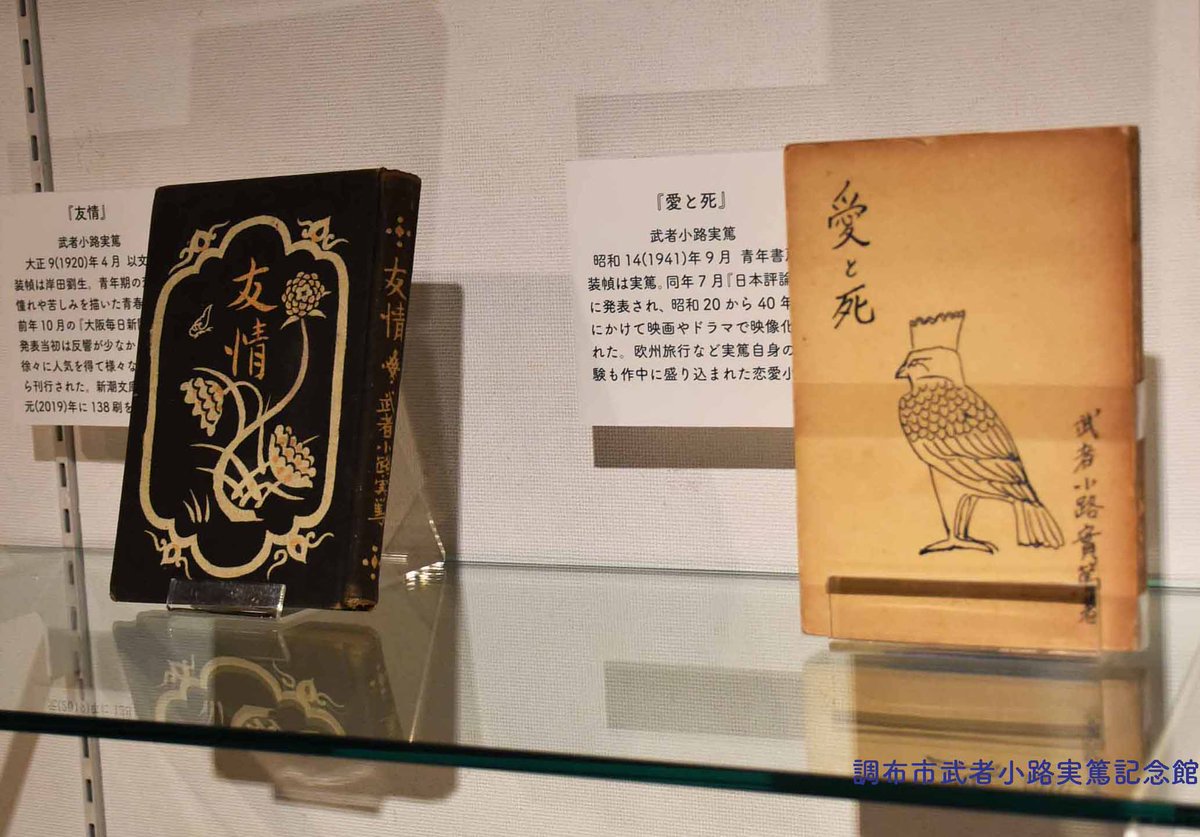 『友情』
武者小路実篤
大正9(1920)年4月 以文
装幀は岸田劉生。青年期の
憧れや苦しみを描いた青春
前年10月の『大阪毎日新
発表当初は反響が少なか
徐々に人気を得て様々な
ら刊行された。新潮文庫
元(2019)年に138刷を
友情
友情
武者小路実篤
『愛と死』
武者小路実篤
昭和14(1941)年9月 青年書
装幀は実篤。同年7月『日本評論
に発表され、昭和20から40年
にかけて映画やドラマで映像化
れた。欧州旅行など実篤自身の
験も作中に盛り込まれた恋愛小
愛と死
武者小路實篤著
調布市武者小路実篤記念館